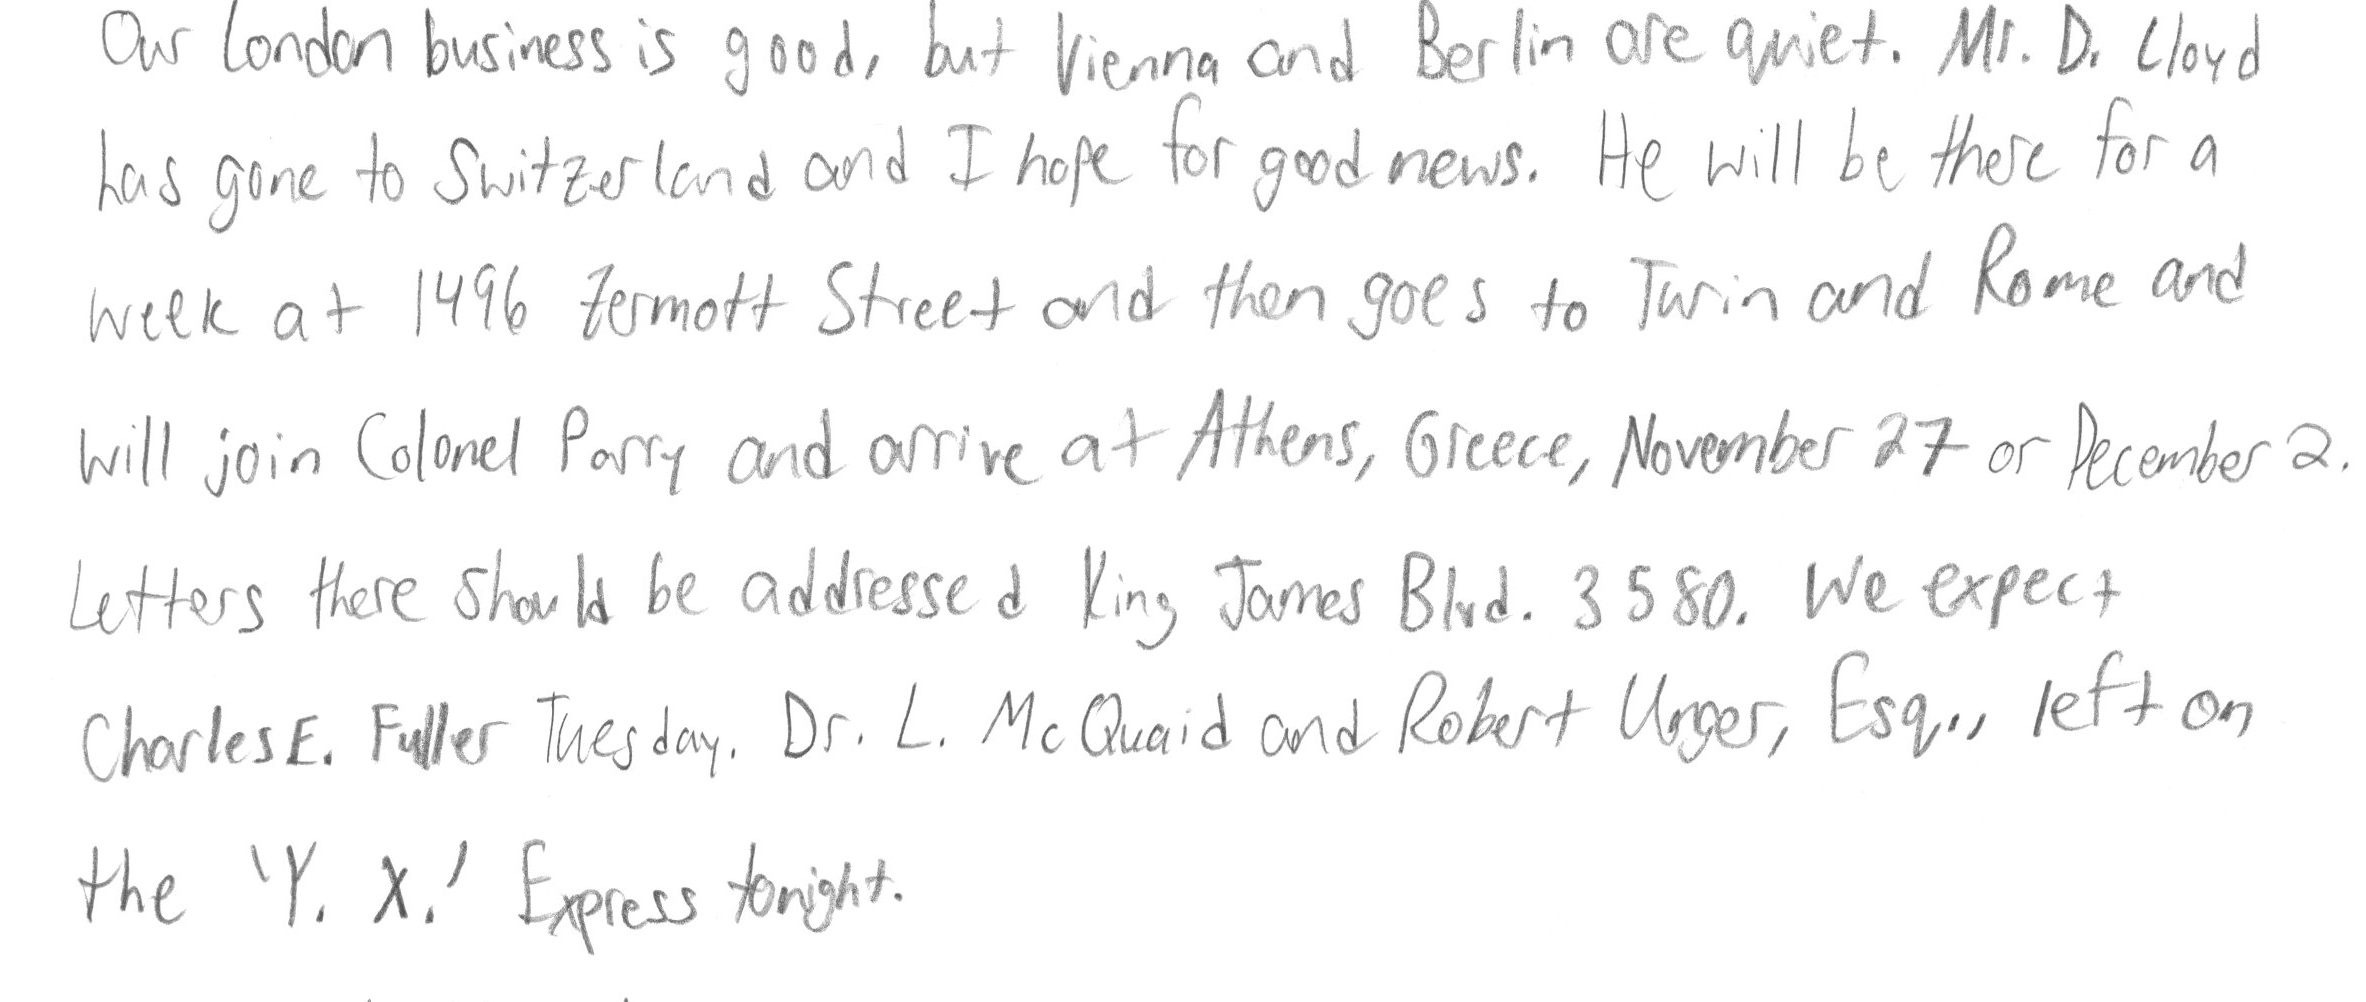 Our London business is good, but Vienna and Berlin are quiet. Mr. D. Lloyd
has gone to Switzerland and I hope for good news. He will be there for a
week at 1496 Zermott Street and then goes to Turin and Rome and
will join Colonel Parry and arrive at Athens, Greece, November 27 or December 2.
Letters there should be addressed King James Blvd. 3580. We expect
Charles E. Fuller Tuesday. Dr. L. McQuaid and Robert Unger, Esq., left on
the 'Y. X.' Express tonight.